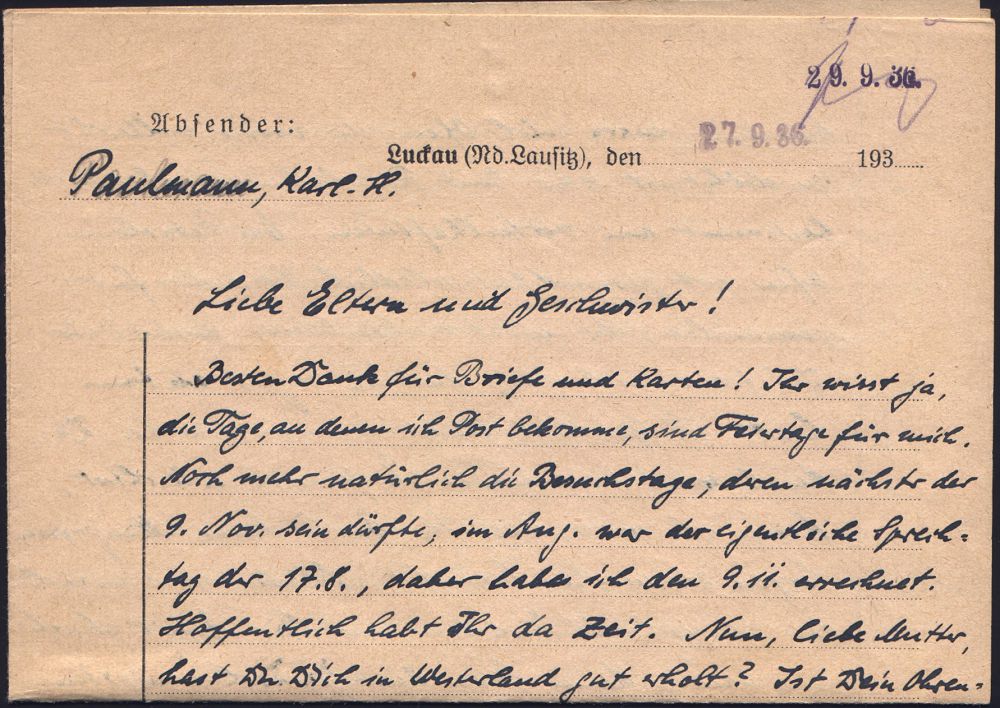 29. 9. 36.
Absender:
Luckau (Nd. Lausitz), den 27. 9. 36. 193
Paulmann, Karl-H.
Liebe Eltern und Geschwister!
Besten Dank für Briefe und Karten! Ihr wisst ja,
die Tage, an denen ich Post bekomme, sind Feiertage für mich.
Noch mehr natürlich die Besuchstage, deren nächster der
9. Nov. sein dürfte, im Aug. war der eigentliche Sprech=
tag der 17.8., daher habe ich den 9.11. errechnet.
Hoffentlich habt Ihr da Zeit. Nun, liebe Mutter,
hast Du Dich in Westerland gut erholt? Ist Dein Ohren=